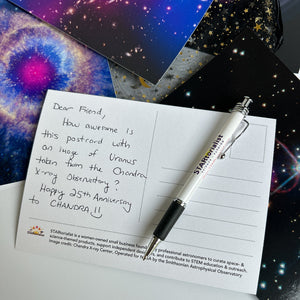 Dear Friend,
How awesome is
this postcard with
an image of Uranus
taken from the Chandra
X-ray Observatory?
Happy 25th Anniversary
to CHANDRA!!
STARtorialist
STARtorialist is a women-owned small business founded by professional astronomers to curate space- &
science-themed products, support independent designers, and contribute to STEM education & outreach.
Image credit: Chandra X-ray Center, Operated for NASA by the Smithsonian Astrophysical Observatory